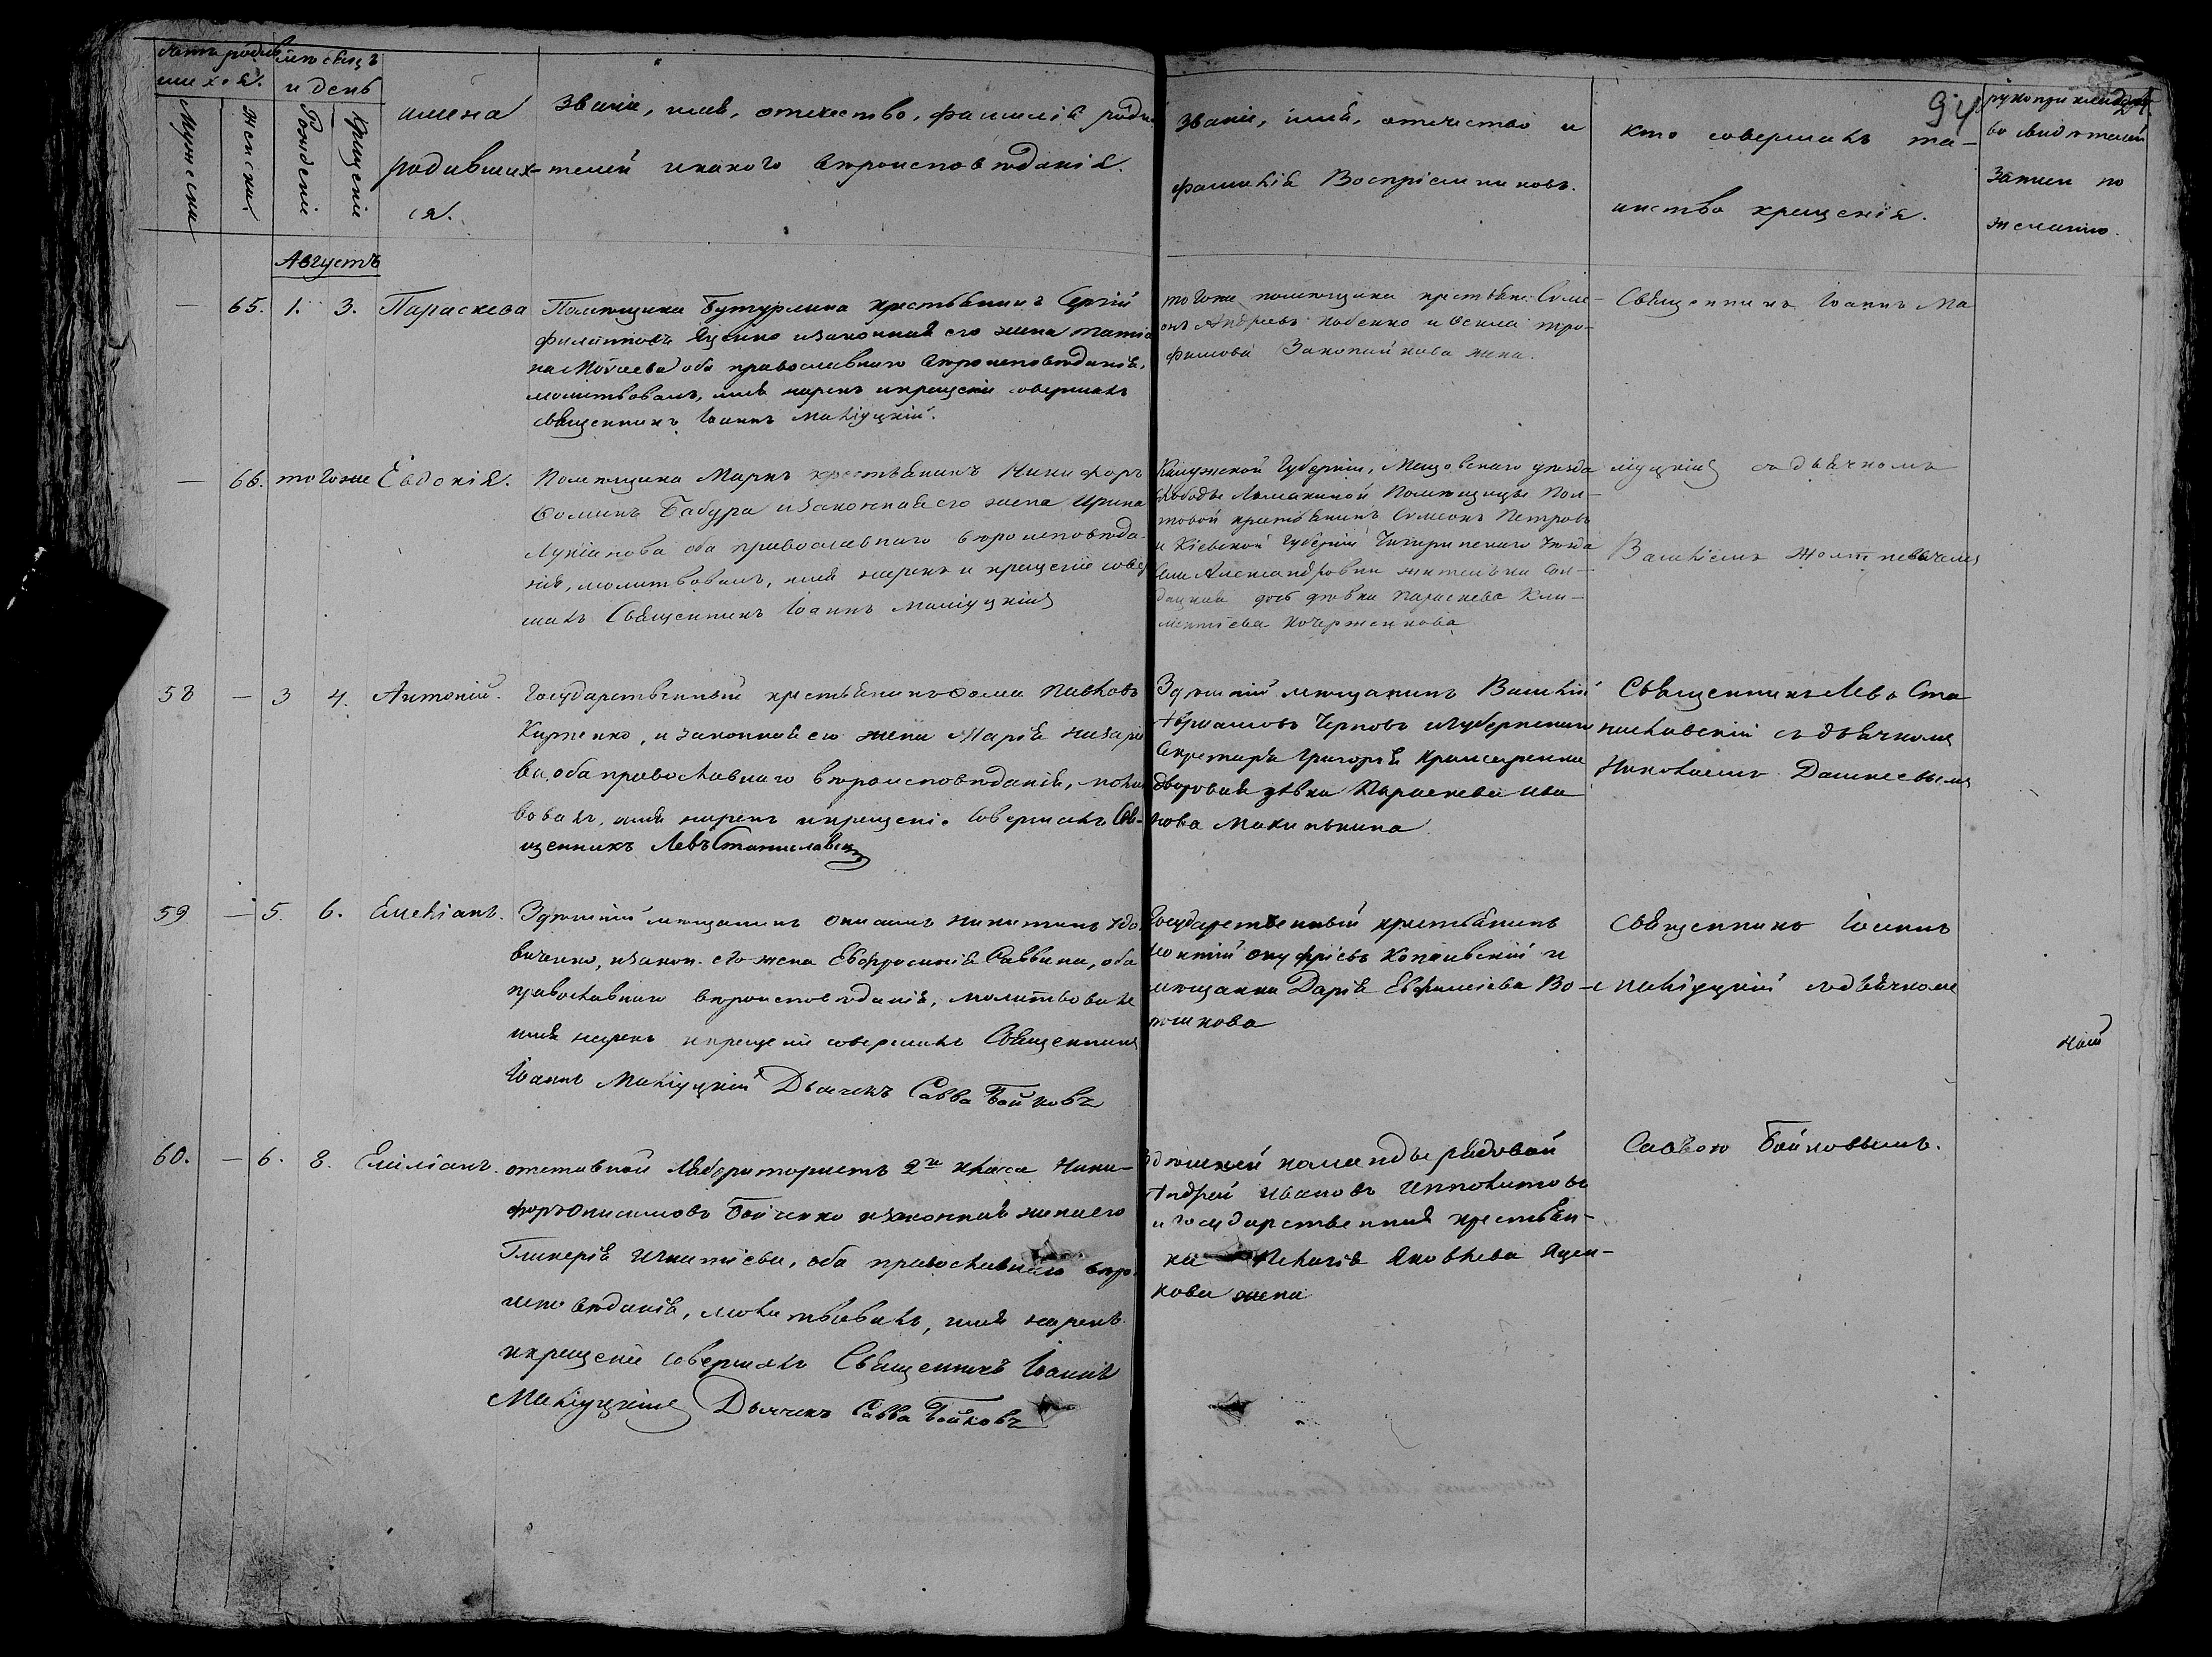 счетъ родив мѣсяцъ
шихся. и день
Мужеска
Женска
Рожденіе
Крещеніе
имена
родивших-
ся.
Званіе, имя, отечество, фамилія роди
телей и какого вѣроисповѣданія.
Званіе, имя, отечество и
фамилія Воспріемниковъ.
кто совершалъ та-
инство крещенія.
94
рукоприкладст
во свидѣтелей
записи по
желанію.
Августъ
— 65. 1. 3. Параскева
Помѣщика Бутурлина крестьянинъ Сергій
Филиповъ Яценко и законная его жена Татія
на Моисеева оба православнаго вѣроисповѣданія,
молитвовалъ, имя нарекъ и крещеніе совершалъ
священникъ Іоаннъ
тогоже помѣщика крестьян: Симе-
онъ Андреевъ и Фекла тро-
фимова жена.
Священникъ Іоаннъ Ма
— 66. тогоже Евдокія.
Помѣщика Маркъ крестьянинъ Никифоръ
Фоминъ Бабура и законная его жена Ирина
Лукіанова оба православнаго вѣроисповѣда-
нія, молитвовалъ, имя нарекъ и крещеніе совер
шалъ Священникъ Іоаннъ
Калужской Губерніи, Мещовскаго уѣзда
слободы Помѣщицы Пол-
товой крестьянинъ Симеонъ Петровъ
и Кіевской Губерніи Чигиринскаго уѣзда
Александровки жителька Сол-
дацкая дочь дѣвка Параскева Кли-
ментіева Кочержинкова
съ дьячкомъ
58 — 3 4. Антоній.
Государственный крестьянинъ Фома Павловъ
Карпенко, и законная его жена Марія Назаріе
ва, оба православнаго вѣроисповѣданія, молит
вовалъ, имя нарекъ и крещеніе совершалъ Свя-
щенникъ Левъ Станиславскій
Здѣшній мѣщанинъ Василій
Авраамовъ Черновъ и Губернскаго
Секретаря Григорія
дворовая дѣвка Параскева Ива
нова
Священникъ Левъ Ста
ниславскій съ дьячкомъ
Николаемъ Дашкевымъ
59 — 5. 6. Емеліанъ.
Здѣшній мѣщанинъ Онисимъ Никитинъ Удо
виченко, и закон. его жена Евфросинія Саввина, оба
православнаго вѣроисповѣданія, молитвовалъ
имя нарекъ и крещеніе совершалъ Священникъ
Іоаннъ Дьячекъ Савва Бойковъ
Государственный крестьянинъ
Онуфріевъ и
мѣщанка Дарія Евфиміева Во-
Священникъ Іоаннъ
съ дьячкомъ
60. — 6. 8. Емиліанъ.
отставной Лаборатористъ 2й класа Ники-
форъ Онисимовъ Бойченко и законная жена его
Гликерія Игнатіева, оба православнаго вѣро
исповѣданія, молитвовалъ, имя нарекъ
и крещеніе совершалъ Священникъ Іоаннъ
Дьячекъ Савва Бойковъ
Здѣшней команды рядовой
Андрей Ивановъ Ипполитовъ
и государственная крестьян-
ка Пелагія Яковлева Яцен-
кова жена
Саввою Бойковымъ.